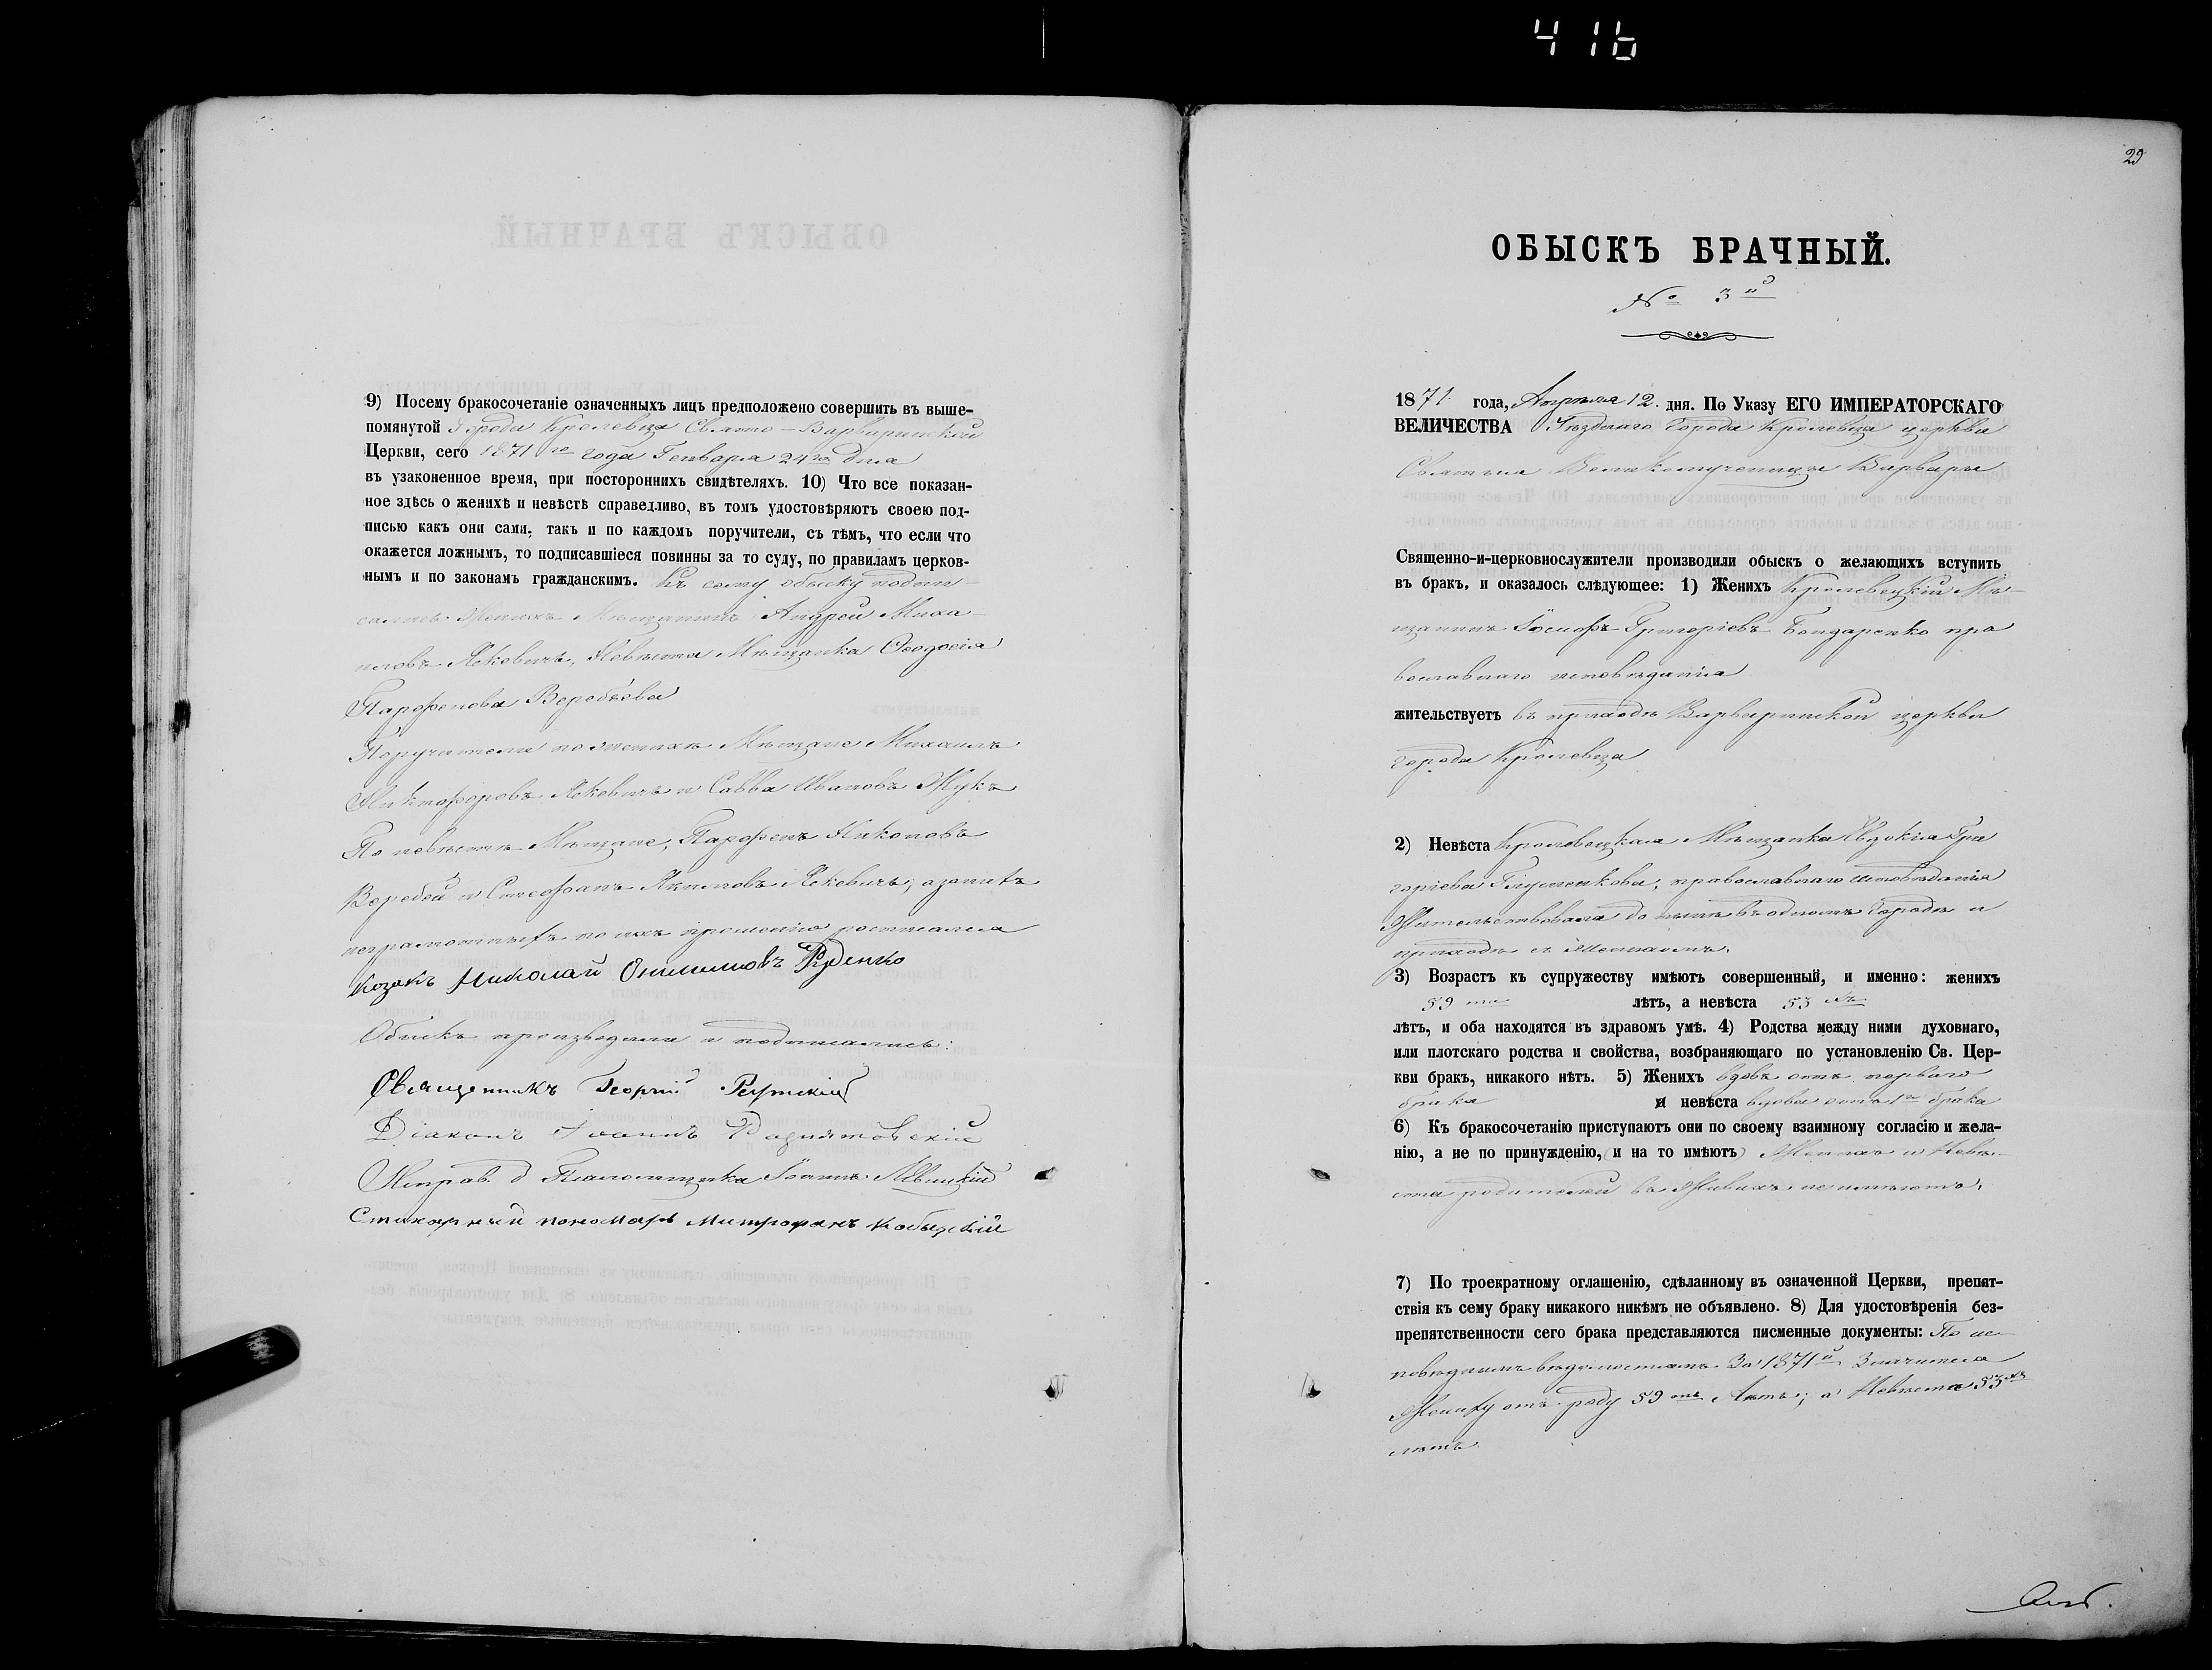 416
9) Посему бракосочетаніе означенныхъ лицъ предположено совершить въ выше-
помянутой Города Кролевца Свято-Варваринской
Церкви, сего 1871го года Генваря 24го дня
въ узаконенное время, при постороннихъ свидѣтеляхъ. 10) Что все показан-
ное здѣсь о женихѣ и невѣстѣ справедливо, въ томъ удостовѣряютъ своею под-
писью какъ они сами, такъ и по каждомъ поручители, съ тѣмъ, что если что
окажется ложнымъ, то подписавшіеся повинны за то суду, по правиламъ церков-
нымъ и по законамъ гражданскимъ. Къ сему обыску подпи-
сались Женихъ Мѣщанинъ Андрей Миха-
иловъ Яковичъ, Невѣста Мѣщанка Ѳеодосія
Парфенова Веребьева
Поручители по женихѣ Мѣщане Михаилъ
Никифоровъ Яковичъ и Савва Ивановъ Жукъ
По невѣстѣ Мѣщане, Парфенъ Никоновъ
Веребей и Стефанъ Яковичъ; а за нихъ
неграмотныхъ по ихъ прошенію росписался
козакъ Николай Онисимовъ Руденко
Обыскъ производили и подписались:
Священникъ Георгій
Діаконъ Іоаннъ
Исправ. д Псаломщика Іоаннъ Левицкій
Стихарный пономарь Митрофанъ Кобыскій
29
ОБЫСКЪ БРАЧНЫЙ.
№ 3й
1871 года, Апрѣля 12. дня. По Указу ЕГО ИМПЕРАТОРСКАГО
ВЕЛИЧЕСТВА Уѣзднаго Города Кролевца церкви
Святыя Великомученицы Варвары
Священно-и-церковнослужители производили обыскъ о желающихъ вступить
въ бракъ, и оказалось слѣдующее: 1) Женихъ Кролевецкій Мѣ-
щанинъ Іосифъ Григоріевъ Бондаренко пра
вославнаго исповѣданія
жительствуетъ въ приходѣ Варваринской церкви
города Кролевца
2) Невѣста Кролевецкая Мѣщанка Евдокія Гри
горіева Глущенкова, православнаго исповѣданія
Жительствовала до нынѣ въ одномъ городѣ и
приходѣ съ Женихомъ.
3) Возрастъ къ супружеству имѣютъ совершенный, и именно: женихъ
59ти лѣтъ, а невѣста 53хъ
лѣтъ, и оба находятся въ здравомъ умѣ. 4) Родства между ними духовнаго,
или плотскаго родства и свойства, возбраняющаго по установленію Св. Цер-
кви бракъ, никакого нѣтъ. 5) Женихъ вдовъ отъ перваго
брака и невѣста вдова отъ 1го брака
6) Къ бракосочетанію приступаютъ они по своему взаимному согласію и жела-
нію, а не по принужденію, (и на то имѣютъ) Женихъ и Невѣ-
ста родителей въ Живыхъ не имѣютъ.
7) По троекратному оглашенію, сдѣланному въ означенной Церкви, препят-
ствія къ сему браку никакого никѣмъ не объявлено. 8) Для удостовѣренія без-
препятственности сего брака представляются писменные документы: По ис
повѣднымъ вѣдомостямъ За 1871й Значится
Жениху отъ роду 59ть Лѣтъ; а Невѣстѣ 53хъ
лѣтъ.